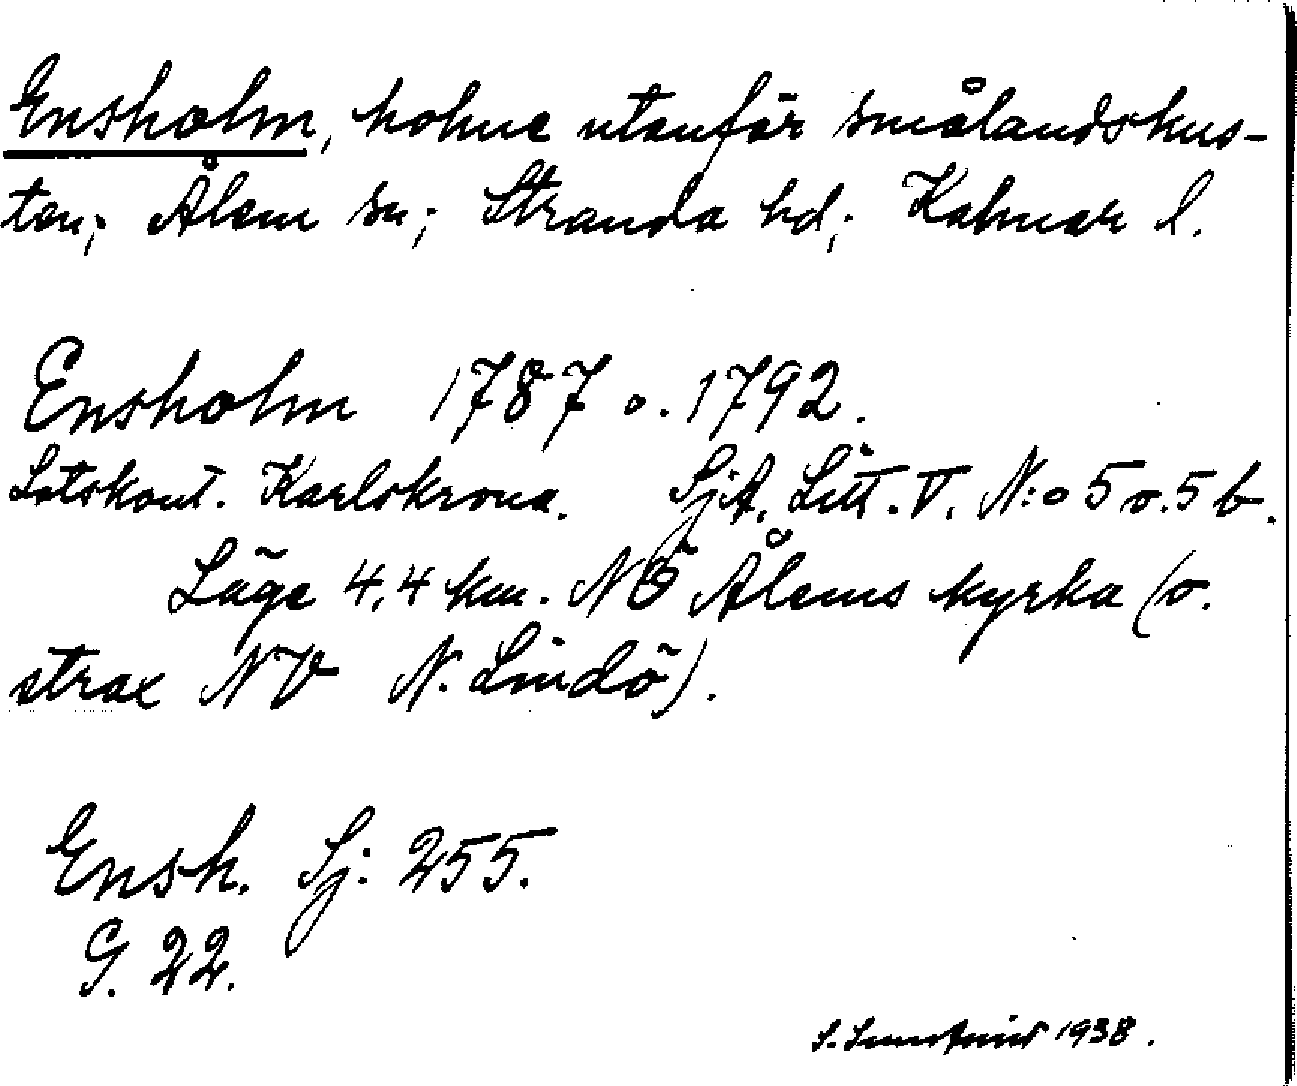 Ensholm, holme utanför smålandskus-
ten; Ålem sn; Stranda hd; Kalmar l.
Ensholm 1787 o. 1792.
Lotskont. Karlskrona. SjA. Litt. V. N:o 5 o. 5 b.
Läge 4,4 km. NÖ Ålems kyrka (o.
strax NV N. Lindö).
Ensh. Sj: 255.
G. 22.
S. 1938.